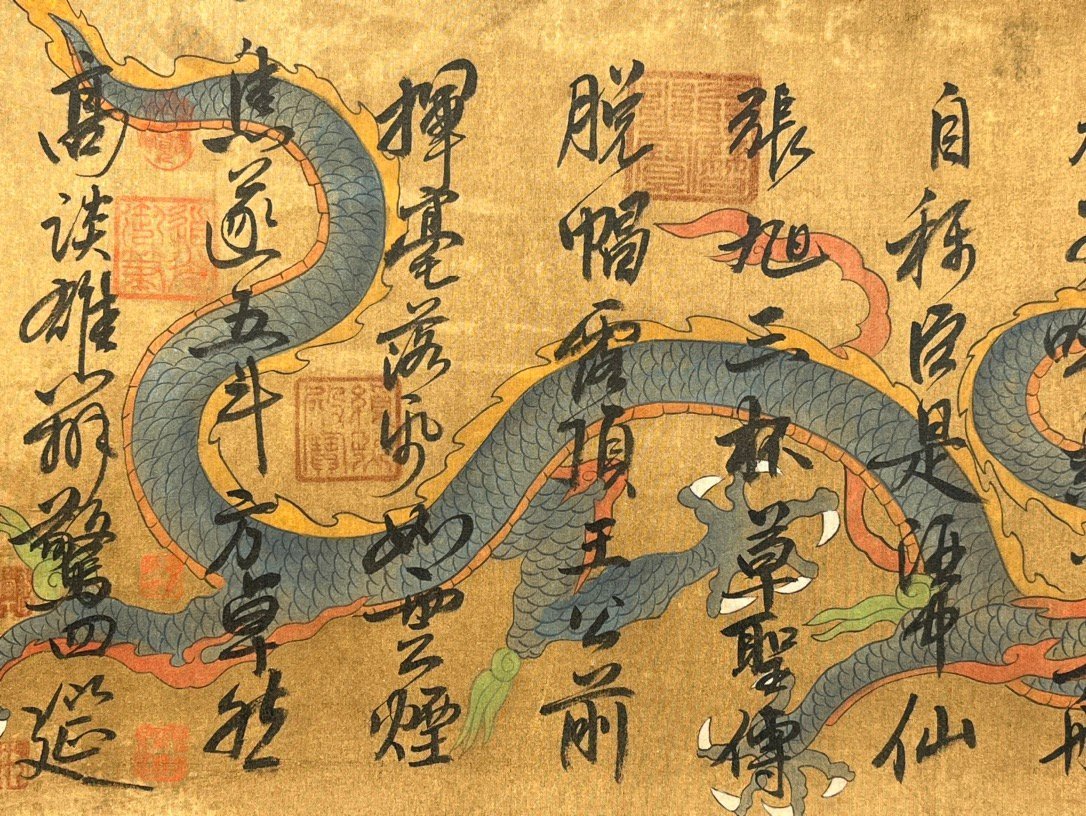 自称臣是酒中仙
張旭三杯草聖傳
脱帽露頂王公前
揮毫落紙如雲煙
焦遂五斗方卓然
高談雄辯驚四筵